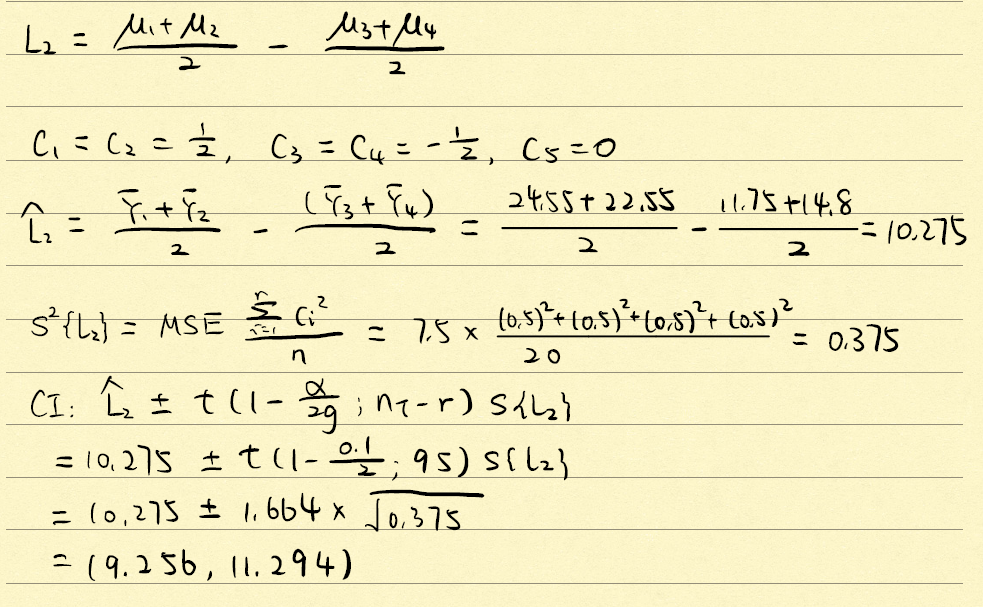 L₂ = (μ₁ + μ₂)/2 - (μ₃ + μ₄)/2
C₁ = C₂ = 1/2, C₃ = C₄ = -1/2, C₅ = 0
L̂₂ = (Ȳ₁. + Ȳ₂)/2 - (Ȳ₃ + Ȳ₄)/2 = (24.55 + 22.55)/2 - (11.75 + 14.8)/2 = 10.275
S²{L₂} = MSE (Σᵢ₌₁ʳ Cᵢ²)/n = 7.5 × ((0.5)² + (0.5)² + (0.5)² + (0.5)²)/20 = 0.375
CI: L̂₂ ± t(1 - α/2g ; n_T - r) S{L₂}
= 10.275 ± t(1 - 0.1/2 ; 95) S{L₂}
= 10.275 ± 1.664 × √0.375
= (9.256, 11.294)